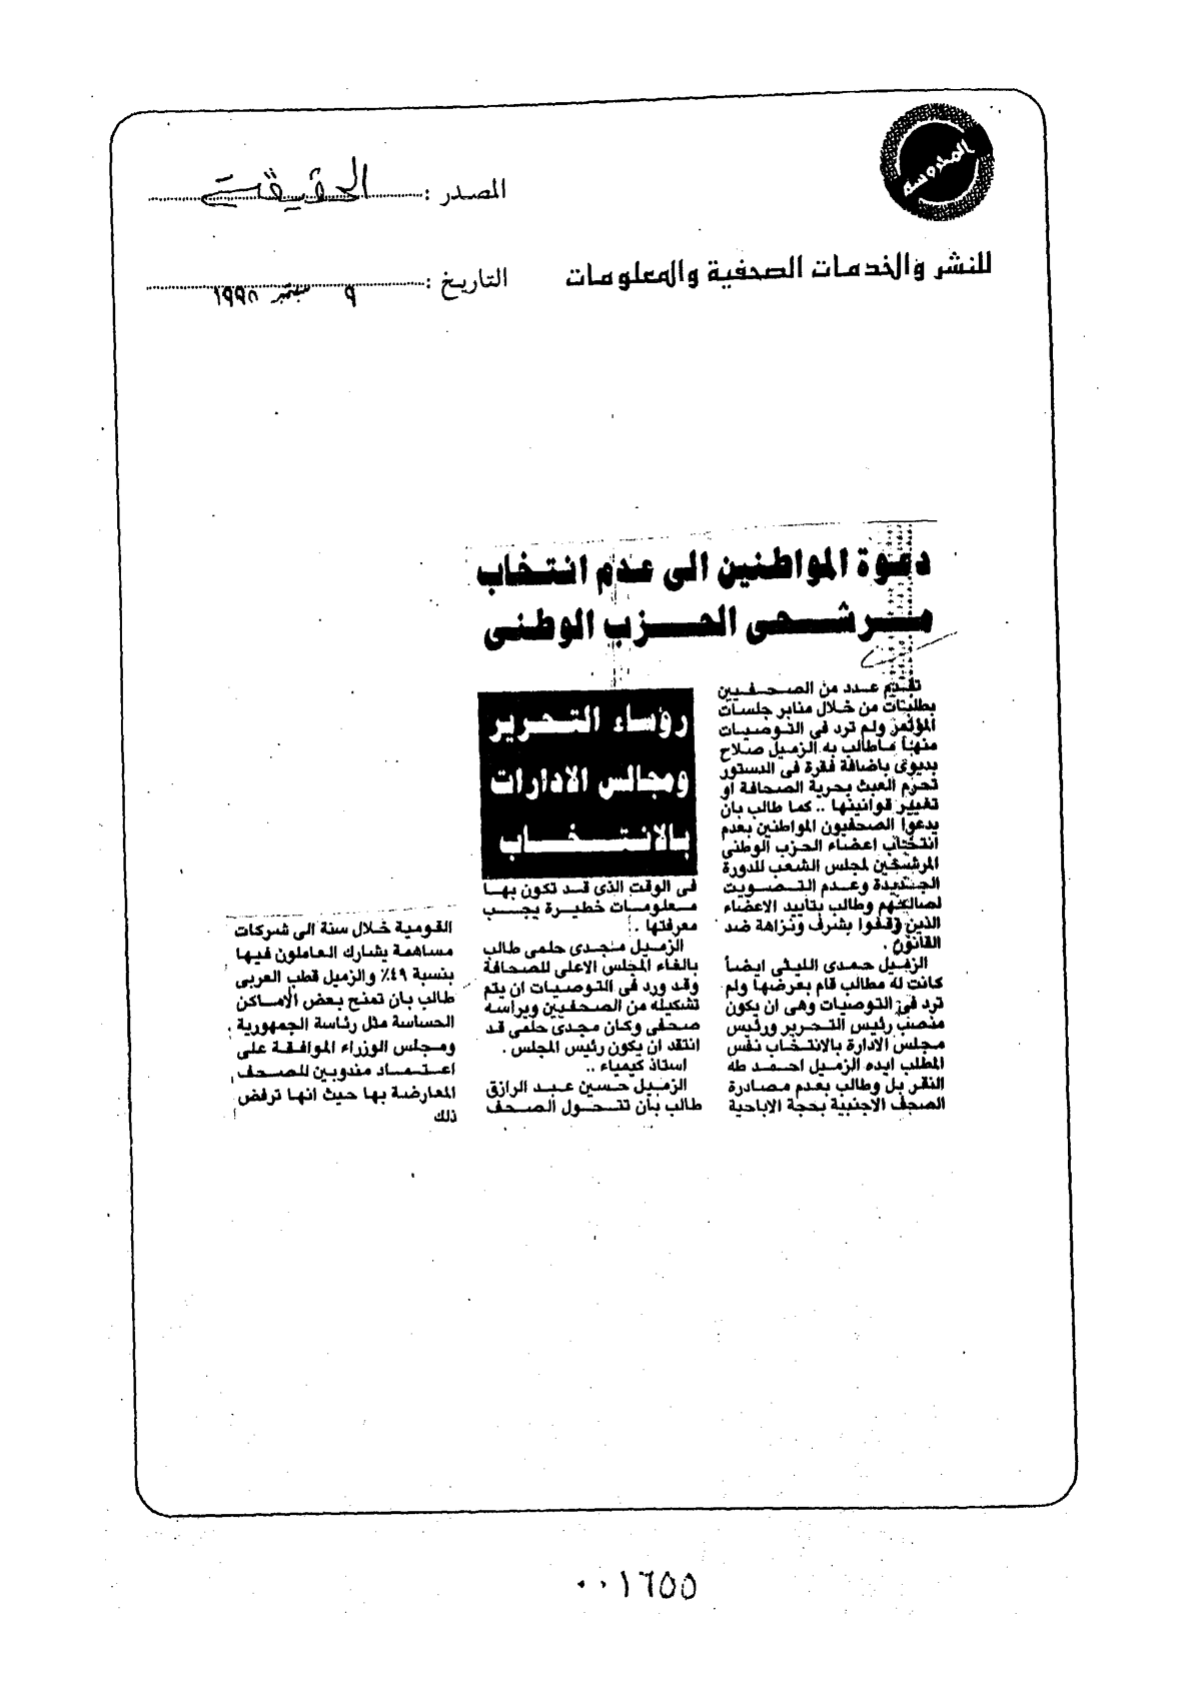 المحروسة
المصدر : الحقيقة
للنشر والخدمات الصحفية والمعلومات
التاريخ : ٩ سبتمبر ١٩٩٨
دعوة المواطنين الى عدم انتخاب
مرشحى الحزب الوطنى
تقدم عدد من الصحفيين
بطلبات من خلال منابر جلسات
المؤتمر ولم ترد فى التوصيات
منها ماطالب به الزميل صلاح
بديوى باضافة فقرة فى الدستور
تحرم العبث بحرية الصحافة او
تغيير قوانينها .. كما طالب بان
يدعوا الصحفيون المواطنين بعدم
انتخاب اعضاء الحزب الوطنى
المرشحين لمجلس الشعب للدورة
الجديدة وعدم التصويت
لصالحهم وطالب بتأييد الاعضاء
الذين وقفوا بشرف ونزاهة ضد
القانون .
الزميل حمدى الليثى ايضاً
كانت له مطالب قام بعرضها ولم
ترد فى التوصيات وهى ان يكون
منصب رئيس التحرير ورئيس
مجلس الادارة بالانتخاب نفس
المطلب ايده الزميل احمد طه
النقر بل وطالب بعدم مصادرة
الصحف الاجنبية بحجة الاباحية
رؤساء التحرير
ومجالس الادارات
بالانتخاب
فى الوقت الذى قد تكون بها
معلومات خطيرة يجب
معرفتها .
الزميل مجدى حلمى طالب
بالغاء المجلس الاعلى للصحافة
وقد ورد فى التوصيات ان يتم
تشكيله من الصحفيين ويرأسه
صحفى وكان مجدى حلمى قد
انتقد ان يكون رئيس المجلس .
استاذ كيمياء ..
الزميل حسين عبد الرازق
طالب بأن تتحول الصحف
القومية خلال سنة الى شركات
مساهمة يشارك العاملون فيها
بنسبة ٤٩٪ والزميل قطب العربى
طالب بان تمنح بعض الأماكن
الحساسة مثل رئاسة الجمهورية
ومجلس الوزراء الموافقة على
اعتماد مندوبين للصحف
المعارضة بها حيث انها ترفض
ذلك
٠٠١٦٥٥